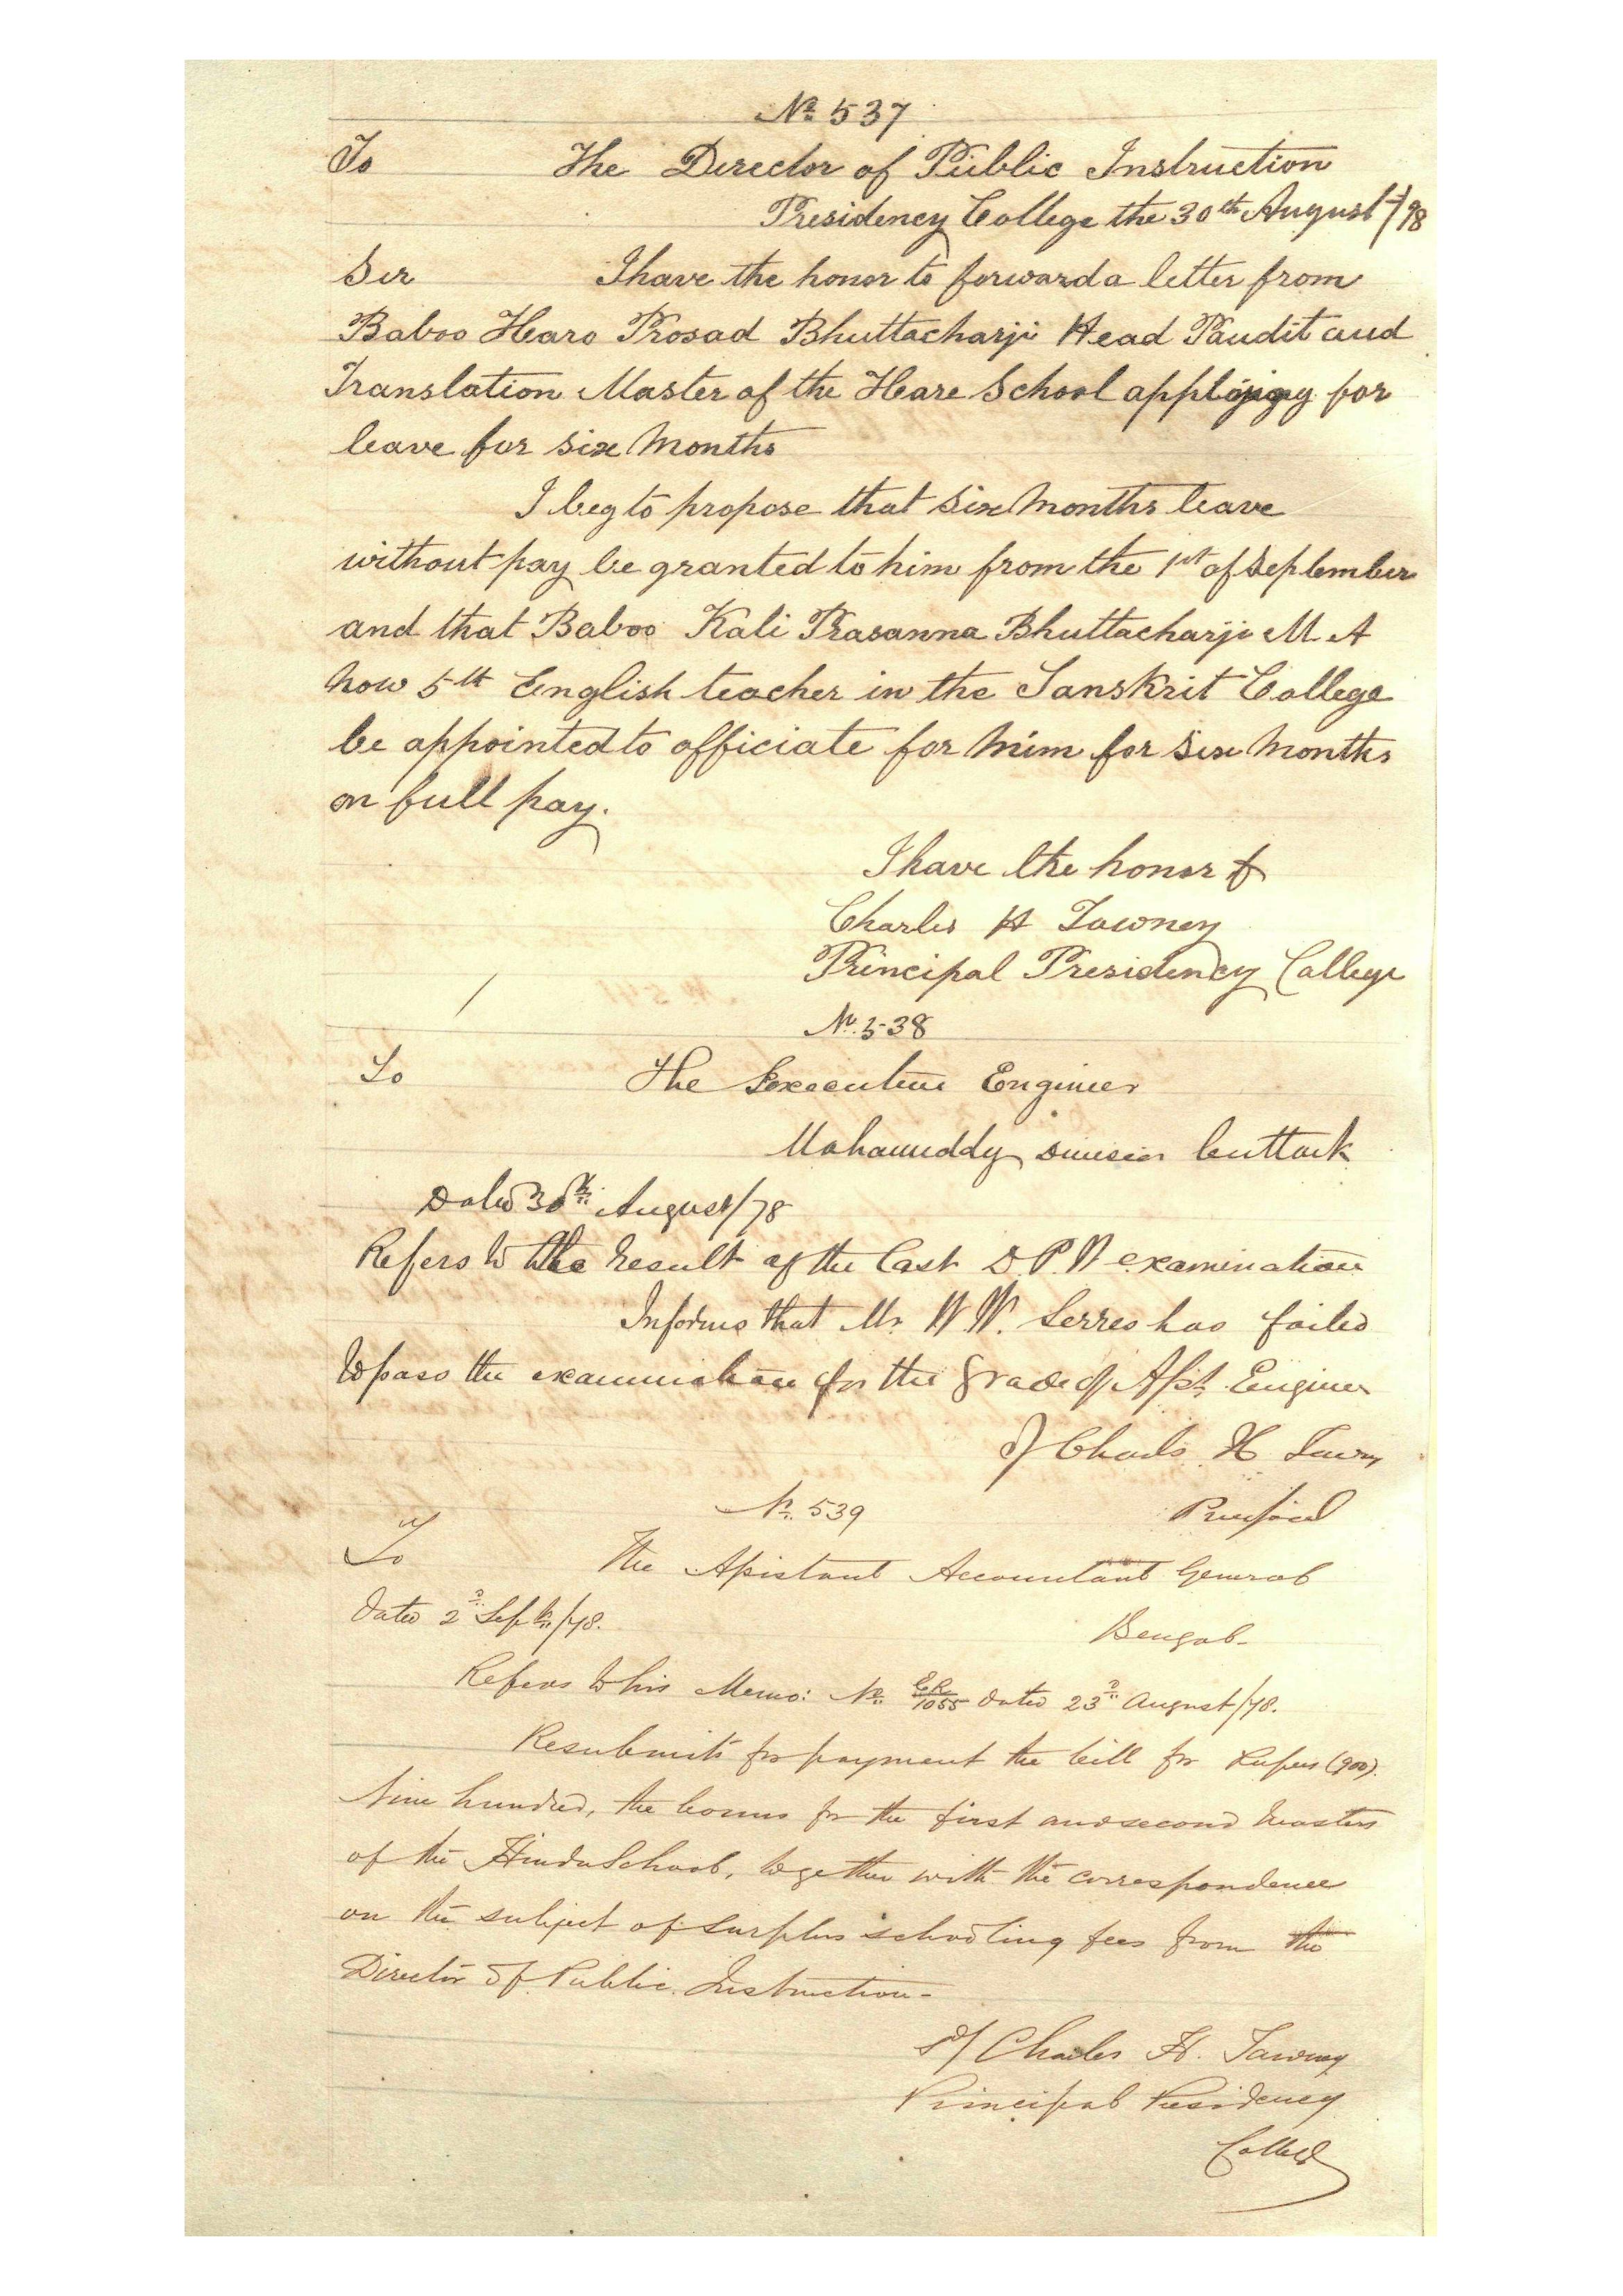 No. 537
To The Director of Public Instruction
Presidency College the 30th August /78
Sir I have the honor to forward a letter from
Baboo Haro Prosad Bhuttacharji Head Pandit and
Translation Master of the Hare School applying for
leave for six Months
I beg to propose that six Months leave
without pay be granted to him from the 1st of September
and that Baboo Kali Prasanna Bhuttacharji M. A
Now 5th English teacher in the Sanskrit College
be appointed to officiate for him for six Months
on full pay.
I have the honor &
Charles H Tawney
Principal Presidency College
No. 538
To The Executive Engineer
Mahanuddy Division Cuttack
Dated 30th August/78
Refers to the result of the last D. P. W examination
Informs that Mr. W W. Serres has failed
to pass the examination for the grade of Asst. Engineer
S/ Charles H Tawney
No. 539 Principal
To The Assistant Accountant General
Dated 2d Septr/78. Bengal-
Refers to his Memo: No. ER/1055 dated 23d August/78.
Resubmits for payment the bill for Rupees (900).
Nine hundred, the bonus for the first and second Masters
of the Hindu School, together with the correspondence
on the subject of surplus schooling fees from the
Director of Public Instruction-
S/ Charles H. Tawney
Principal Presidency
College